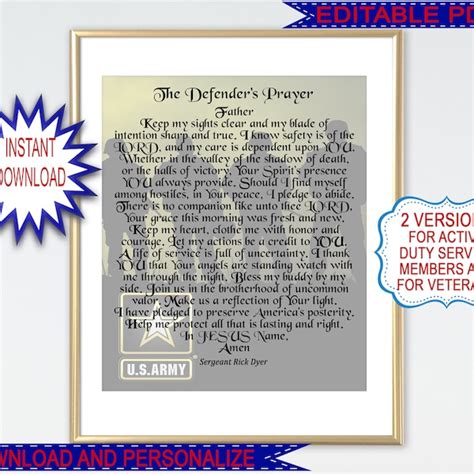 EDITABLE PD
INSTANT
DOWNLOAD
The Defender's Prayer
Father
Keep my sights clear and my blade of
intention sharp and true. I know safety is of the
LORD, and my care is dependent upon YOU.
Whether in the valley of the shadow of death,
or the halls of victory, Your Spirit's presence
YOU always provide. Should I find myself
among hostiles, in Your peace, I pledge to abide.
There is no companion like unto thee LORD.
Your grace this morning was fresh and new.
Keep my heart, clothe me with honor and
courage. Let my actions be a credit to YOU.
A life of service is full of uncertainty. I thank
YOU that your angels are standing watch with
me through the night. Bless my buddy by my
side. Join us in the brotherhood of uncommon
valor. Make us a reflection of Your light.
I have pledged to preserve America's posterity.
Help me protect all that is lasting and right.
In JESUS Name,
Amen
Sergeant Rick Dyer
U.S.ARMY
2 VERSION
FOR ACTIV
DUTY SERVI
MEMBERS A
FOR VETERA
OWNLOAD AND PERSONALIZE